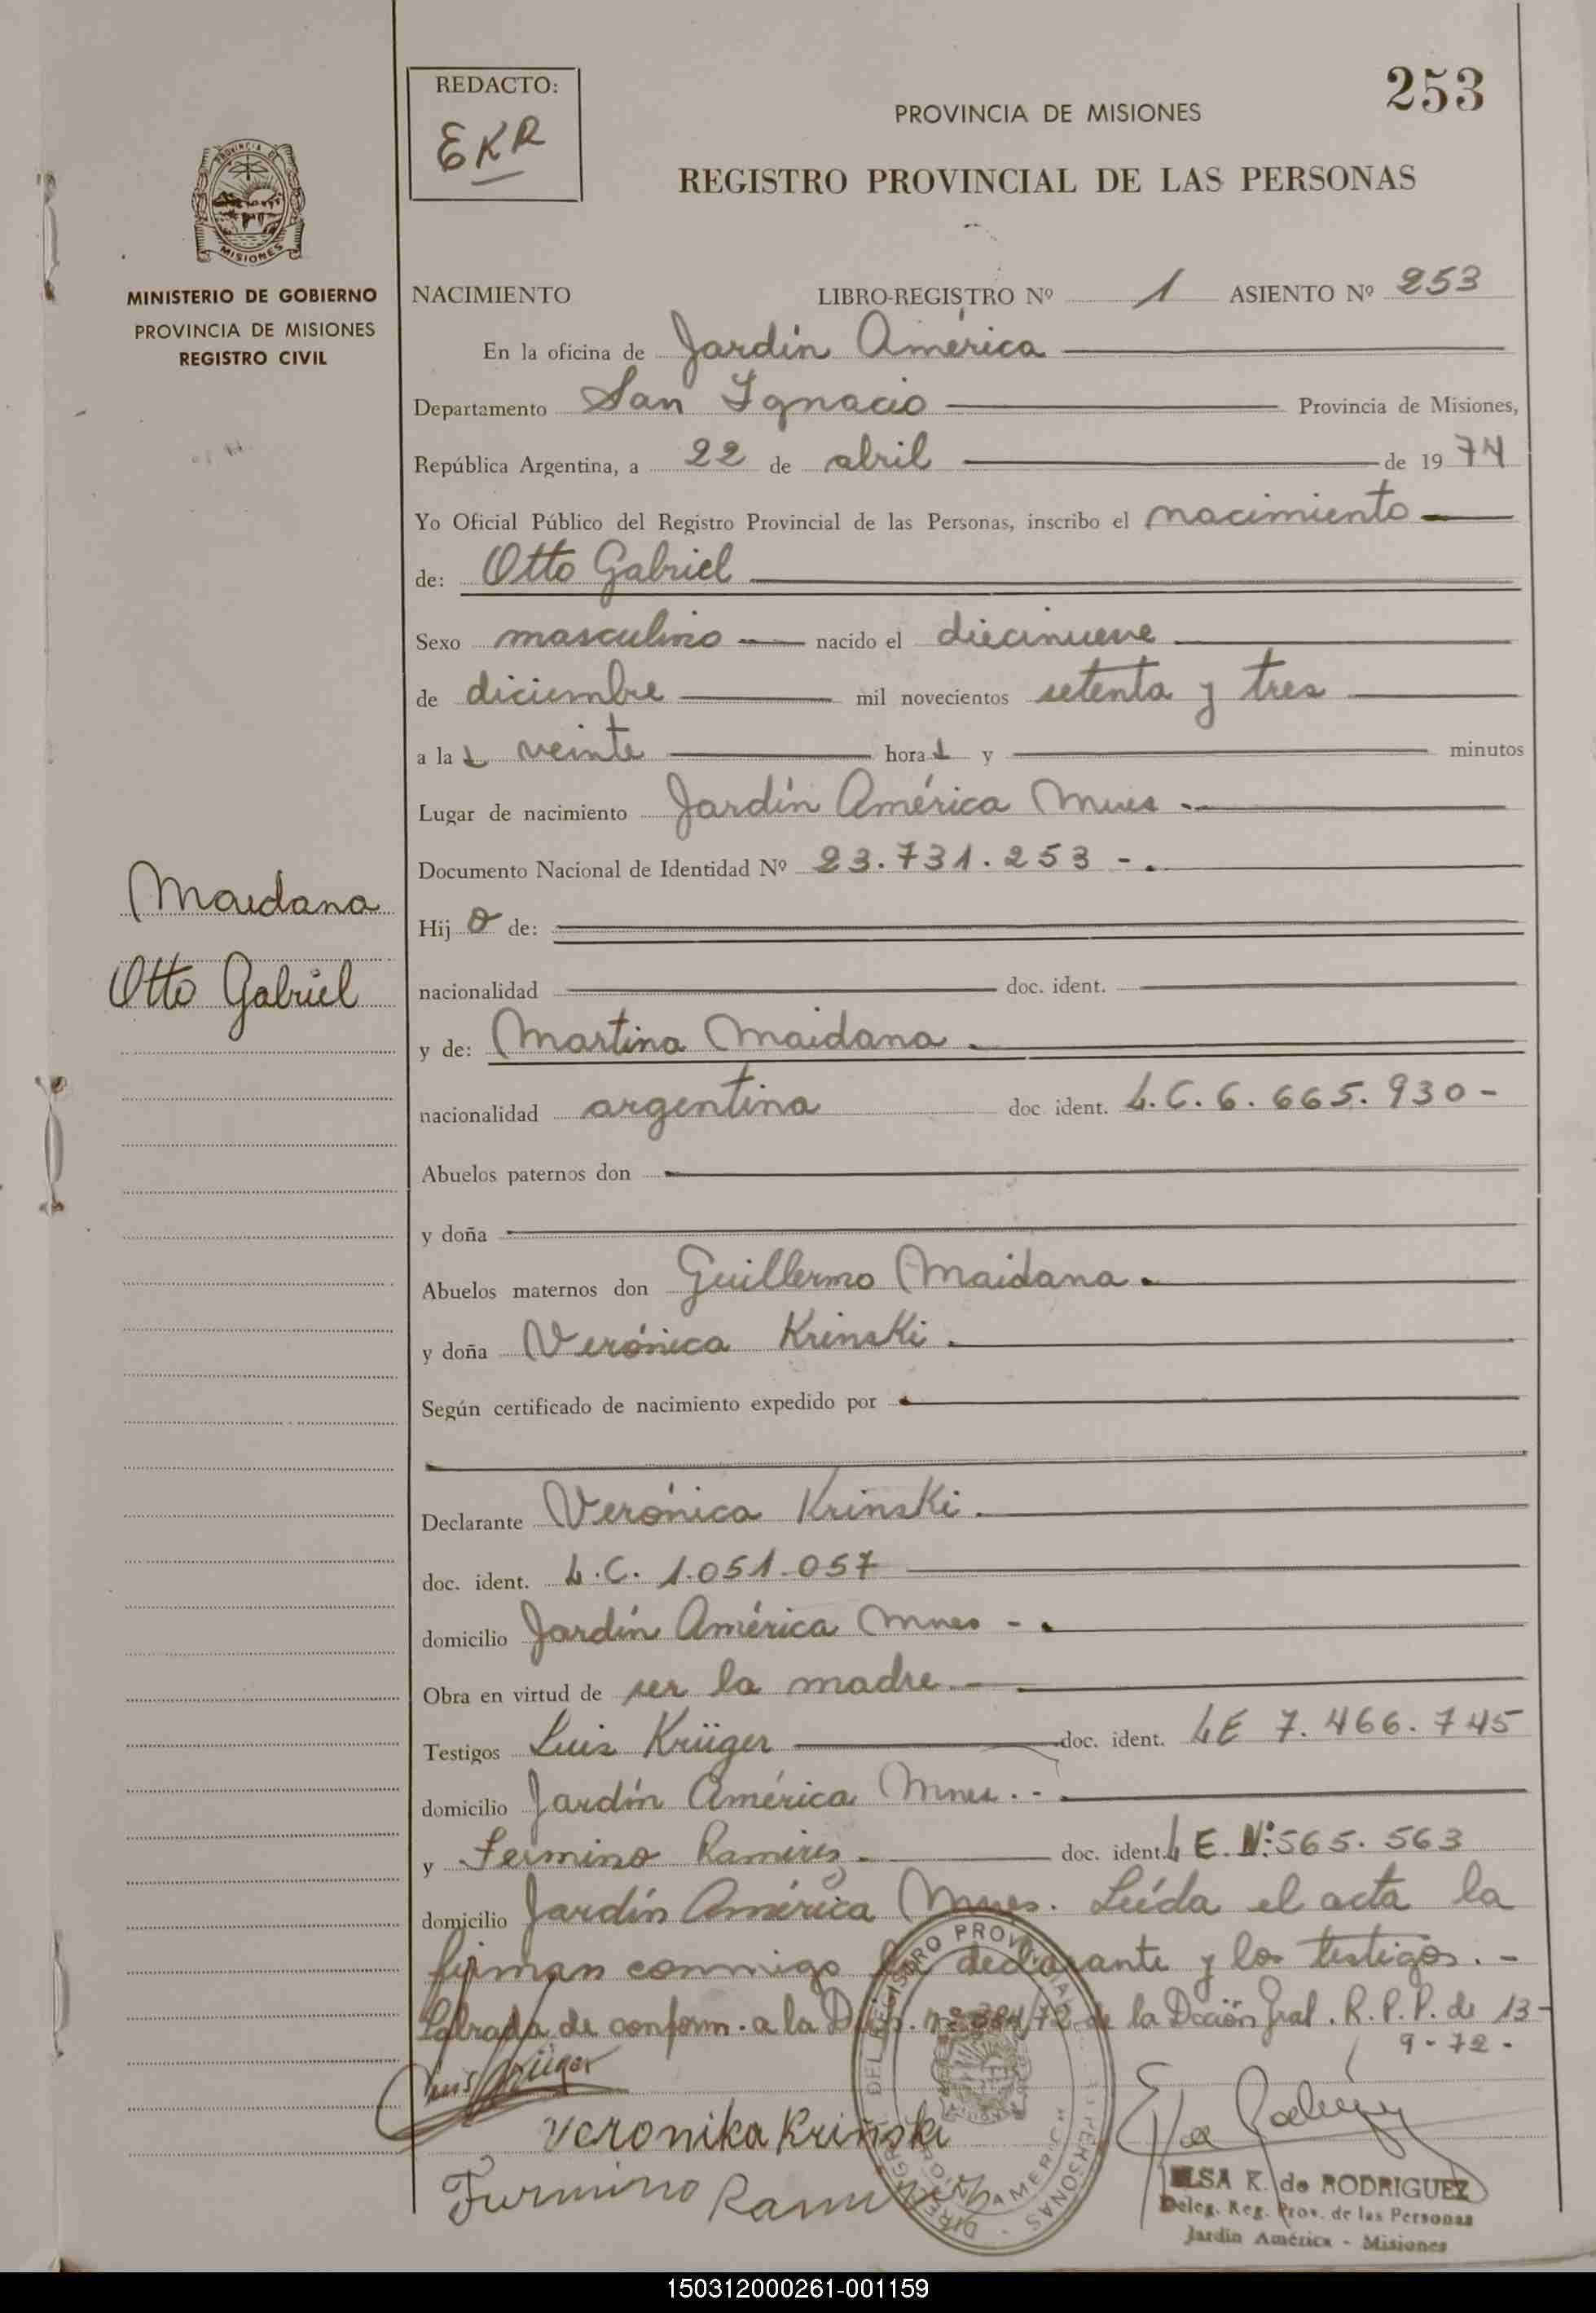 REDACTO:
EKR
253
PROVINCIA DE MISIONES
REGISTRO PROVINCIAL DE LAS PERSONAS
PROVINCIA DE
MISIONES
MINISTERIO DE GOBIERNO
PROVINCIA DE MISIONES
REGISTRO CIVIL
NACIMIENTO LIBRO-REGISTRO Nº 1 ASIENTO Nº 253
En la oficina de Jardín América
Departamento San Ignacio Provincia de Misiones,
República Argentina, a 22 de abril de 1974
Yo Oficial Público del Registro Provincial de las Personas, inscribo el nacimiento
de: Otto Gabriel
Sexo masculino nacido el diecinueve
de diciembre mil novecientos setenta y tres
a las veinte horas y minutos
Lugar de nacimiento Jardín América Mnes
Documento Nacional de Identidad Nº 23.731.253 -.
Maidana
Otto Gabriel
Hijo de:
nacionalidad doc. ident.
y de: Martina Maidana.
nacionalidad argentina doc ident. L.C. 6.665.930-
Abuelos paternos don
y doña
Abuelos maternos don Guillermo Maidana.
y doña Verónica Krinski.
Según certificado de nacimiento expedido por
Declarante Verónica Krinski.
doc. ident. L.C. 1.051.057
domicilio Jardín América Mnes -.
Obra en virtud de ser la madre.-
Testigos Luis Krüger doc. ident. LE 7.466.745
domicilio Jardín América Mnes.-
y Fermino Ramirez. doc. ident. LE. Nº:565.563
domicilio Jardín América Mnes. Leída el acta la
firman conmigo la declarante y los testigos.-
Labrada de conform. a la Disp. nº 384/72 de la Dcción Gral. R.P.P. de 13-
9-72-
Luis Krüger
Veronika Kriñski
Furmino Rami
DEL REGISTRO PROVINCIAL PERSONAS
AMERICA
ELSA K. de RODRIGUEZ
Deleg. Reg. Prov. de las Personas
Jardín América - Misiones
150312000261-001159